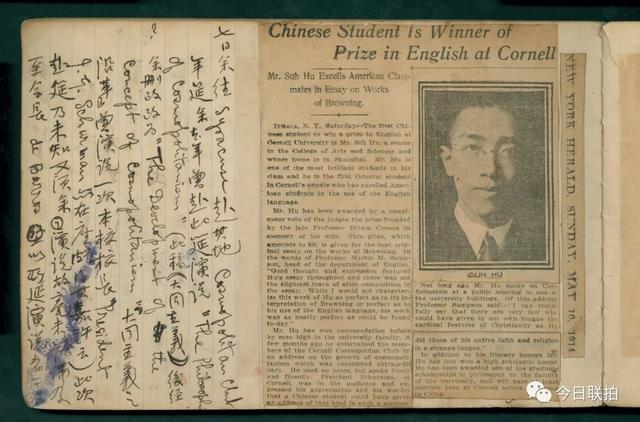 Chinese Student Is Winner of
Prize in English at Cornell
Mr. Suh Hu Excells American Class-
mates in Essay on Works
of Browning.
ITHACA, N. Y., Saturday.—The first Chi-
nese student to win a prize in English at
Cornell University is Mr. Suh Hu, a senior
in the College of Arts and Sciences and
whose home is in Shanghai. Mr. Hu is
one of the most brilliant students in his
class and he is the first Oriental student
in Cornell's annals who has excelled Amer-
ican students in the use of the English
language.
Mr. Hu has been awarded by a unani-
mous vote of the judges the prize founded
by the late Professor Hiram Corson in
memory of his wife. This prize, which
amounts to $50, is given for the best orig-
inal essay on the works of Browning. In
the words of Professor Martin M. Samp-
son, head of the department of English,
"Good thought and expression featured
Hu's essay throughout and there was not
the slightest trace of alien composition in
the essay. While I would not character-
ize this work of Hu as perfect as to its in-
terpretation of Browning or perfect as to
his use of the English language, his work
was as nearly perfect as could be found
to-day."
Mr. Hu has won commendation before
by men high in the university faculty. A
few months ago he entertained the mem-
bers of the Cornell Cosmopolitan Club by
an address on the growth of cosmopoli-
tanism which was considered extraordi-
nary. He used no notes, but spoke freely
and fluently. President Schurman, of
Cornell, was in the audience and ex-
pressed his appreciation and his wonder
that a Chinese student could have given
an address of that kind in such a manner.
SUH HU
Not long ago Mr. Hu spoke on Con-
fucianism at a public meeting in one of
the university buildings. Of this address
Professor Sampson said:—"I can truth-
fully say that there are very few who
could have given in our own tongue the
cardinal features of Christianity as Hu
did those of his entire faith and religion
in a strange tongue."
In addition to his literary honors Mr.
Hu has just won a high scholastic honor.
He has been awarded one of the graduate
scholarships in philosophy by the faculty
of the university, and will pass
another year at Cornell before
to China.
NEW YORK HERALD, SUNDAY, MAY 10, 1914
七日余往 Syracuse 赴其地 Cosmopolitan Club
年延余去年曾赴此延演说 "The Philosophy
of Cosmopolitanism (此稿大同主義) 後經
余删改为 "The Development of the
Concept of Cosmopolitanism 大同主義之
沿革曾演说一次本校校长 President
J. G. Schurman
今日联拍